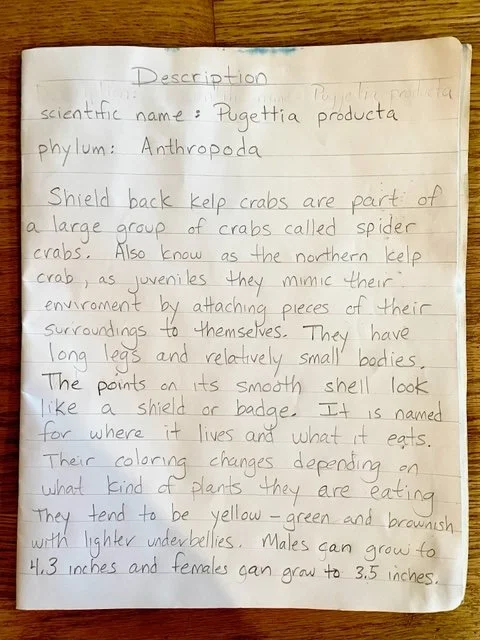 Description
scientific name: Pugettia producta
phylum: Anthropoda
Shield back kelp crabs are part of
a large group of crabs called spider
crabs. Also know as the northern kelp
crab, as juveniles they mimic their
enviroment by attaching pieces of their
surroundings to themselves. They have
long legs and relatively small bodies.
The points on its smooth shell look
like a shield or badge. It is named
for where it lives and what it eats.
Their coloring changes depending on
what kind of plants they are eating
They tend to be yellow-green and brownish
with lighter underbellies. Males can grow to
4.3 inches and females can grow to 3.5 inches.